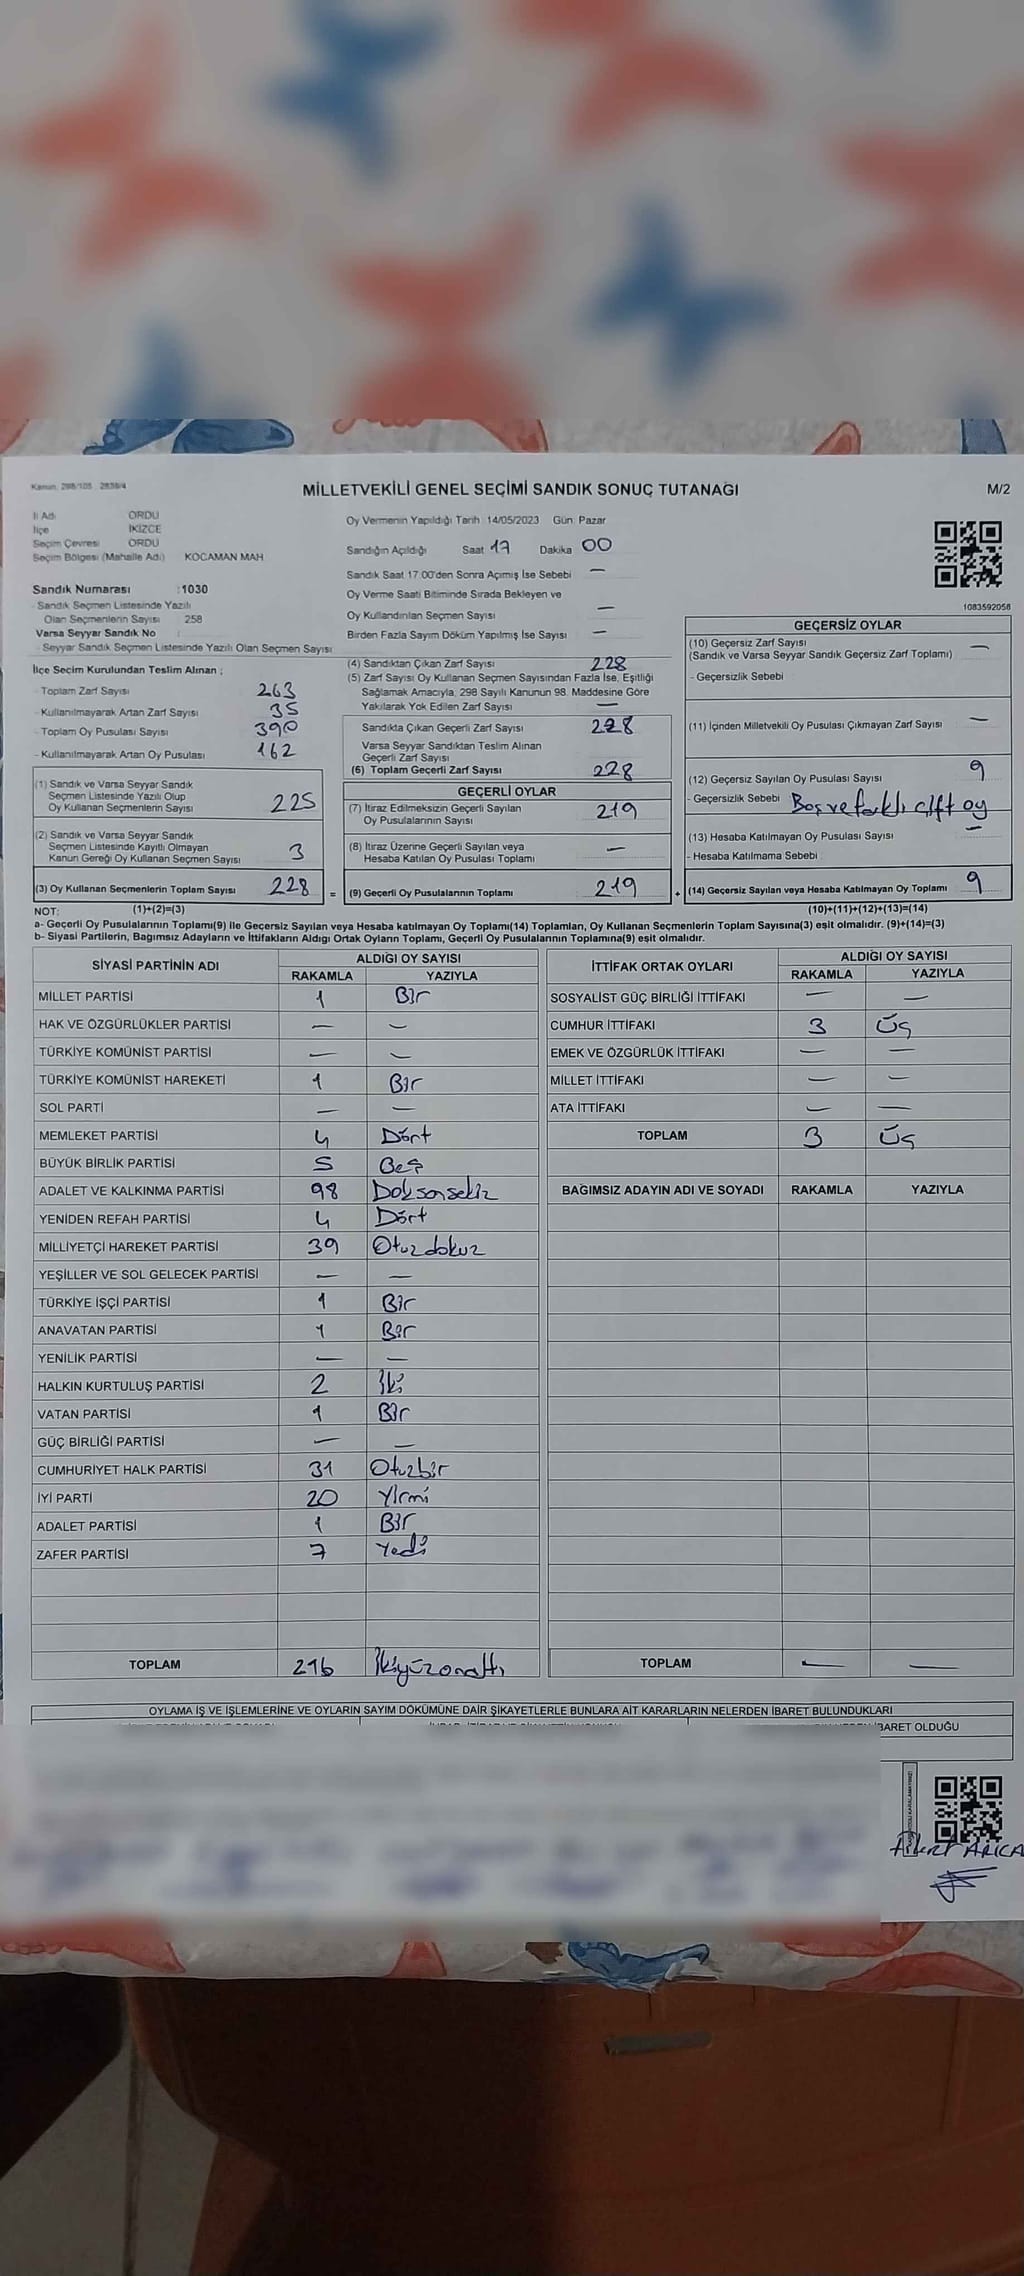 Kanun: 298/105 2839/4
MİLLETVEKİLİ GENEL SEÇİMİ SANDIK SONUÇ TUTANAĞI
M/2
İl Adı ORDU
İlçe İKİZCE
Seçim Çevresi ORDU
Seçim Bölgesi (Mahalle Adı) KOCAMAN MAH
Sandık Numarası :1030
- Sandık Seçmen Listesinde Yazılı
Olan Seçmenlerin Sayısı 258
Varsa Seyyar Sandık No :
- Seyyar Sandık Seçmen Listesinde Yazılı Olan Seçmen Sayısı
İlçe Seçim Kurulundan Teslim Alınan ;
- Toplam Zarf Sayısı 263
- Kullanılmayarak Artan Zarf Sayısı 35
- Toplam Oy Pusulası Sayısı 390
- Kullanılmayarak Artan Oy Pusulası 162
(1) Sandık ve Varsa Seyyar Sandık
Seçmen Listesinde Yazılı Olup
Oy Kullanan Seçmenlerin Sayısı 225
(2) Sandık ve Varsa Seyyar Sandık
Seçmen Listesinde Kayıtlı Olmayan
Kanun Gereği Oy Kullanan Seçmen Sayısı 3
(3) Oy Kullanan Seçmenlerin Toplam Sayısı 228 =
Oy Vermenin Yapıldığı Tarih 14/05/2023 Gün Pazar
Sandığın Açıldığı Saat 17 Dakika 00
Sandık Saat 17:00'den Sonra Açımış İse Sebebi —
Oy Verme Saati Bitiminde Sırada Bekleyen ve
Oy Kullandırılan Seçmen Sayısı —
Birden Fazla Sayım Döküm Yapılmış İse Sayısı —
(4) Sandıktan Çıkan Zarf Sayısı 228
(5) Zarf Sayısı Oy Kullanan Seçmen Sayısından Fazla İse, Eşitliği
Sağlamak Amacıyla, 298 Sayılı Kanunun 98. Maddesine Göre
Yakılarak Yok Edilen Zarf Sayısı —
Sandıkta Çıkan Geçerli Zarf Sayısı 228
Varsa Seyyar Sandıktan Teslim Alınan
Geçerli Zarf Sayısı
(6) Toplam Geçerli Zarf Sayısı 228
GEÇERLİ OYLAR
(7) İtiraz Edilmeksizin Geçerli Sayılan
Oy Pusulalarının Sayısı 219
(8) İtiraz Üzerine Geçerli Sayılan veya
Hesaba Katılan Oy Pusulası Toplamı —
(9) Geçerli Oy Pusulalarının Toplamı 219 +
1083592056
GEÇERSİZ OYLAR
(10) Geçersiz Zarf Sayısı —
(Sandık ve Varsa Seyyar Sandık Geçersiz Zarf Toplamı)
- Geçersizlik Sebebi
(11) İçinden Milletvekili Oy Pusulası Çıkmayan Zarf Sayısı —
(12) Geçersiz Sayılan Oy Pusulası Sayısı 9
- Geçersizlik Sebebi Boş ve farklı çift oy
(13) Hesaba Katılmayan Oy Pusulası Sayısı —
- Hesaba Katılmama Sebebi
(14) Geçersiz Sayılan veya Hesaba Katılmayan Oy Toplamı 9
NOT: (1)+(2)=(3) (10)+(11)+(12)+(13)=(14)
a- Geçerli Oy Pusulalarının Toplamı(9) ile Geçersiz Sayılan veya Hesaba katılmayan Oy Toplamı(14) Toplamları, Oy Kullanan Seçmenlerin Toplam Sayısına(3) eşit olmalıdır. (9)+(14)=(3)
b- Siyasi Partilerin, Bağımsız Adayların ve İttifakların Aldığı Ortak Oyların Toplamı, Geçerli Oy Pusulalarının Toplamına(9) eşit olmalıdır.
SİYASİ PARTİNİN ADI ALDIĞI OY SAYISI
RAKAMLA YAZIYLA
MİLLET PARTİSİ 1 Bir
HAK VE ÖZGÜRLÜKLER PARTİSİ — —
TÜRKİYE KOMÜNİST PARTİSİ — —
TÜRKİYE KOMÜNİST HAREKETİ 1 Bir
SOL PARTİ — —
MEMLEKET PARTİSİ 4 Dört
BÜYÜK BİRLİK PARTİSİ 5 Beş
ADALET VE KALKINMA PARTİSİ 98 Doksansekiz
YENİDEN REFAH PARTİSİ 4 Dört
MİLLİYETÇİ HAREKET PARTİSİ 39 Otuzdokuz
YEŞİLLER VE SOL GELECEK PARTİSİ — —
TÜRKİYE İŞÇİ PARTİSİ 1 Bir
ANAVATAN PARTİSİ 1 Bir
YENİLİK PARTİSİ — —
HALKIN KURTULUŞ PARTİSİ 2 İki
VATAN PARTİSİ 1 Bir
GÜÇ BİRLİĞİ PARTİSİ — —
CUMHURİYET HALK PARTİSİ 31 Otuzbir
İYİ PARTİ 20 Yirmi
ADALET PARTİSİ 1 Bir
ZAFER PARTİSİ 7 Yedi
TOPLAM 216 İkiyüzonaltı
İTTİFAK ORTAK OYLARI ALDIĞI OY SAYISI
RAKAMLA YAZIYLA
SOSYALİST GÜÇ BİRLİĞİ İTTİFAKI — —
CUMHUR İTTİFAKI 3 Üç
EMEK VE ÖZGÜRLÜK İTTİFAKI — —
MİLLET İTTİFAKI — —
ATA İTTİFAKI — —
TOPLAM 3 Üç
BAĞIMSIZ ADAYIN ADI VE SOYADI RAKAMLA YAZIYLA
TOPLAM — —
OYLAMA İŞ VE İŞLEMLERİNE VE OYLARIN SAYIM DÖKÜMÜNE DAİR ŞİKAYETLERLE BUNLARA AİT KARARLARIN NELERDEN İBARET BULUNDUKLARI
İBARET OLDUĞU
ARICA